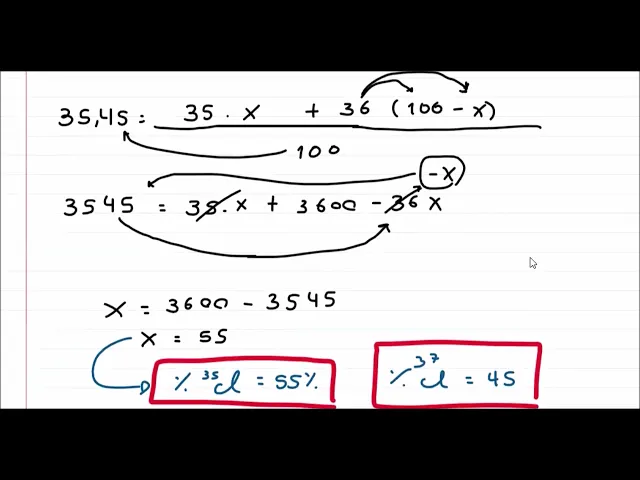 35,45 = 35 . x + 36 (100 - x)
100
- x
3545 = 35.x + 3600 - 36 x
x = 3600 - 3545
x = 55
% ³⁵Cl = 55%
% ³⁷Cl = 45